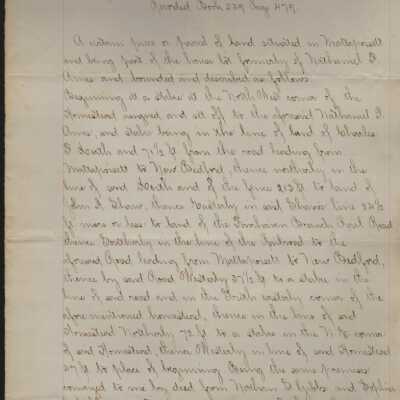 Recorded Book 239 Page 479.
A certain piece or parcel of land situated in Mattapoisett
and being part of the house lot formerly of Nathaniel
Ames and bounded and described as follows.
Beginning at a stake at the North West corner of the
Homestead assigned and set off to the aforesaid Nathaniel
Ames, said stake being in the line of land of Charles
and 71 1/2 ft from the road leading from
Mattapoisett to New Bedford, thence northerly in the
line of said and of the fence 213 ft to land of
Shaw, thence Easterly in said Shaw's line
ft more or less to land of the Fairhaven Branch Rail Road
thence Southerly in the line of the Railroad to the
aforesaid Road leading from Mattapoisett to New Bedford,
thence by said Road Westerly 37 1/2 ft to a stake in the
line of said road and in the South easterly corner of the
afore mentioned homestead, thence in the line of said
Homestead Northerly 72 ft to a stake in the N.E. corner
of said Homestead, thence Westerly in line of said Homestead
ft to place of beginning. Being the same premises
conveyed to me by deed from Gibbs and